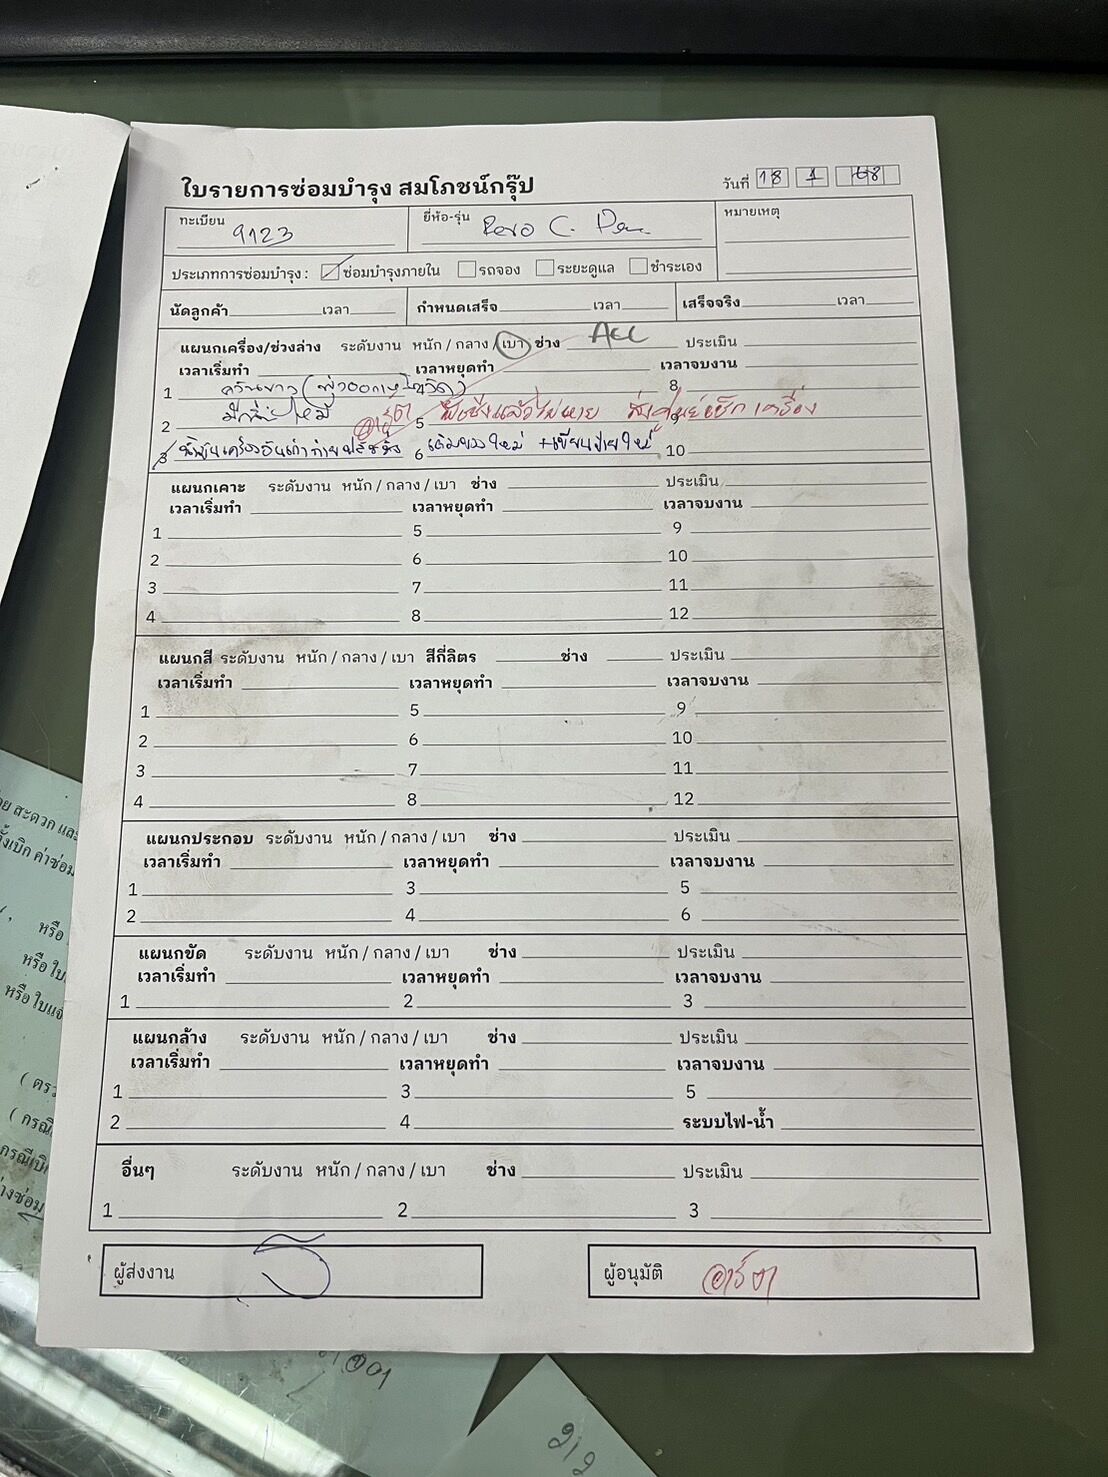 ใบรายการซ่อมบำรุง สมโภชน์กรุ๊ป
วันที่ 18 1 68
ทะเบียน 9123
ยี่ห้อ-รุ่น Revo C.
หมายเหตุ
ประเภทการซ่อมบำรุง : ซ่อมบำรุงภายใน รถจอง ระยะดูแล ชำระเอง
นัดลูกค้า เวลา กำหนดเสร็จ เวลา เสร็จจริง เวลา
แผนกเครื่อง/ช่วงล่าง ระดับงาน หนัก / กลาง / เบา ช่าง Acc ประเมิน
เวลาเริ่มทำ เวลาหยุดทำ เวลาจบงาน
1 ควันขาว 8
2 มีกลิ่นไหม้ อาร์ต 5 แล้วไม่หาย ส่งศูนย์เช็กเครื่อง
3 น้ำมันเครื่องอันเก่าถ่าย 6 เติมของใหม่ +เขียนป้ายใหม่ 10
แผนกเคาะ ระดับงาน หนัก / กลาง / เบา ช่าง ประเมิน
เวลาเริ่มทำ เวลาหยุดทำ เวลาจบงาน
1 5 9
2 6 10
3 7 11
4 8 12
แผนกสี ระดับงาน หนัก / กลาง / เบา สีกี่ลิตร ช่าง ประเมิน
เวลาเริ่มทำ เวลาหยุดทำ เวลาจบงาน
1 5 9
2 6 10
3 7 11
4 8 12
แผนกประกอบ ระดับงาน หนัก / กลาง / เบา ช่าง ประเมิน
เวลาเริ่มทำ เวลาหยุดทำ เวลาจบงาน
1 3 5
2 4 6
แผนกขัด ระดับงาน หนัก / กลาง / เบา ช่าง ประเมิน
เวลาเริ่มทำ เวลาหยุดทำ เวลาจบงาน
1 2 3
แผนกล้าง ระดับงาน หนัก / กลาง / เบา ช่าง ประเมิน
เวลาเริ่มทำ เวลาหยุดทำ เวลาจบงาน
1 3 5
2 4 ระบบไฟ-น้ำ
อื่นๆ ระดับงาน หนัก / กลาง / เบา ช่าง ประเมิน
1 2 3
ผู้ส่งงาน
ผู้อนุมัติ อาร์ต
สะดวก และ
เบิก ค่าซ่อม
หรือ
หรือ ใบ
หรือ ใบแจ้
( ตรว
( กรณี
กรณีเบิ
่างซ่อม
2/2